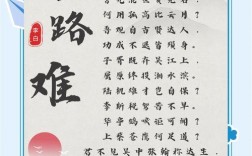 路难
李白
何用孤高比云月？
吾观自古贤达人，
功成不退皆殒身。
子胥既弃吴江上，
屈原终投湘水滨。
陆机雄才岂自保？
李斯税驾苦不早。
华亭鹤唳讵可闻？
上蔡苍鹰何足道？
君不见吴中张翰称达生